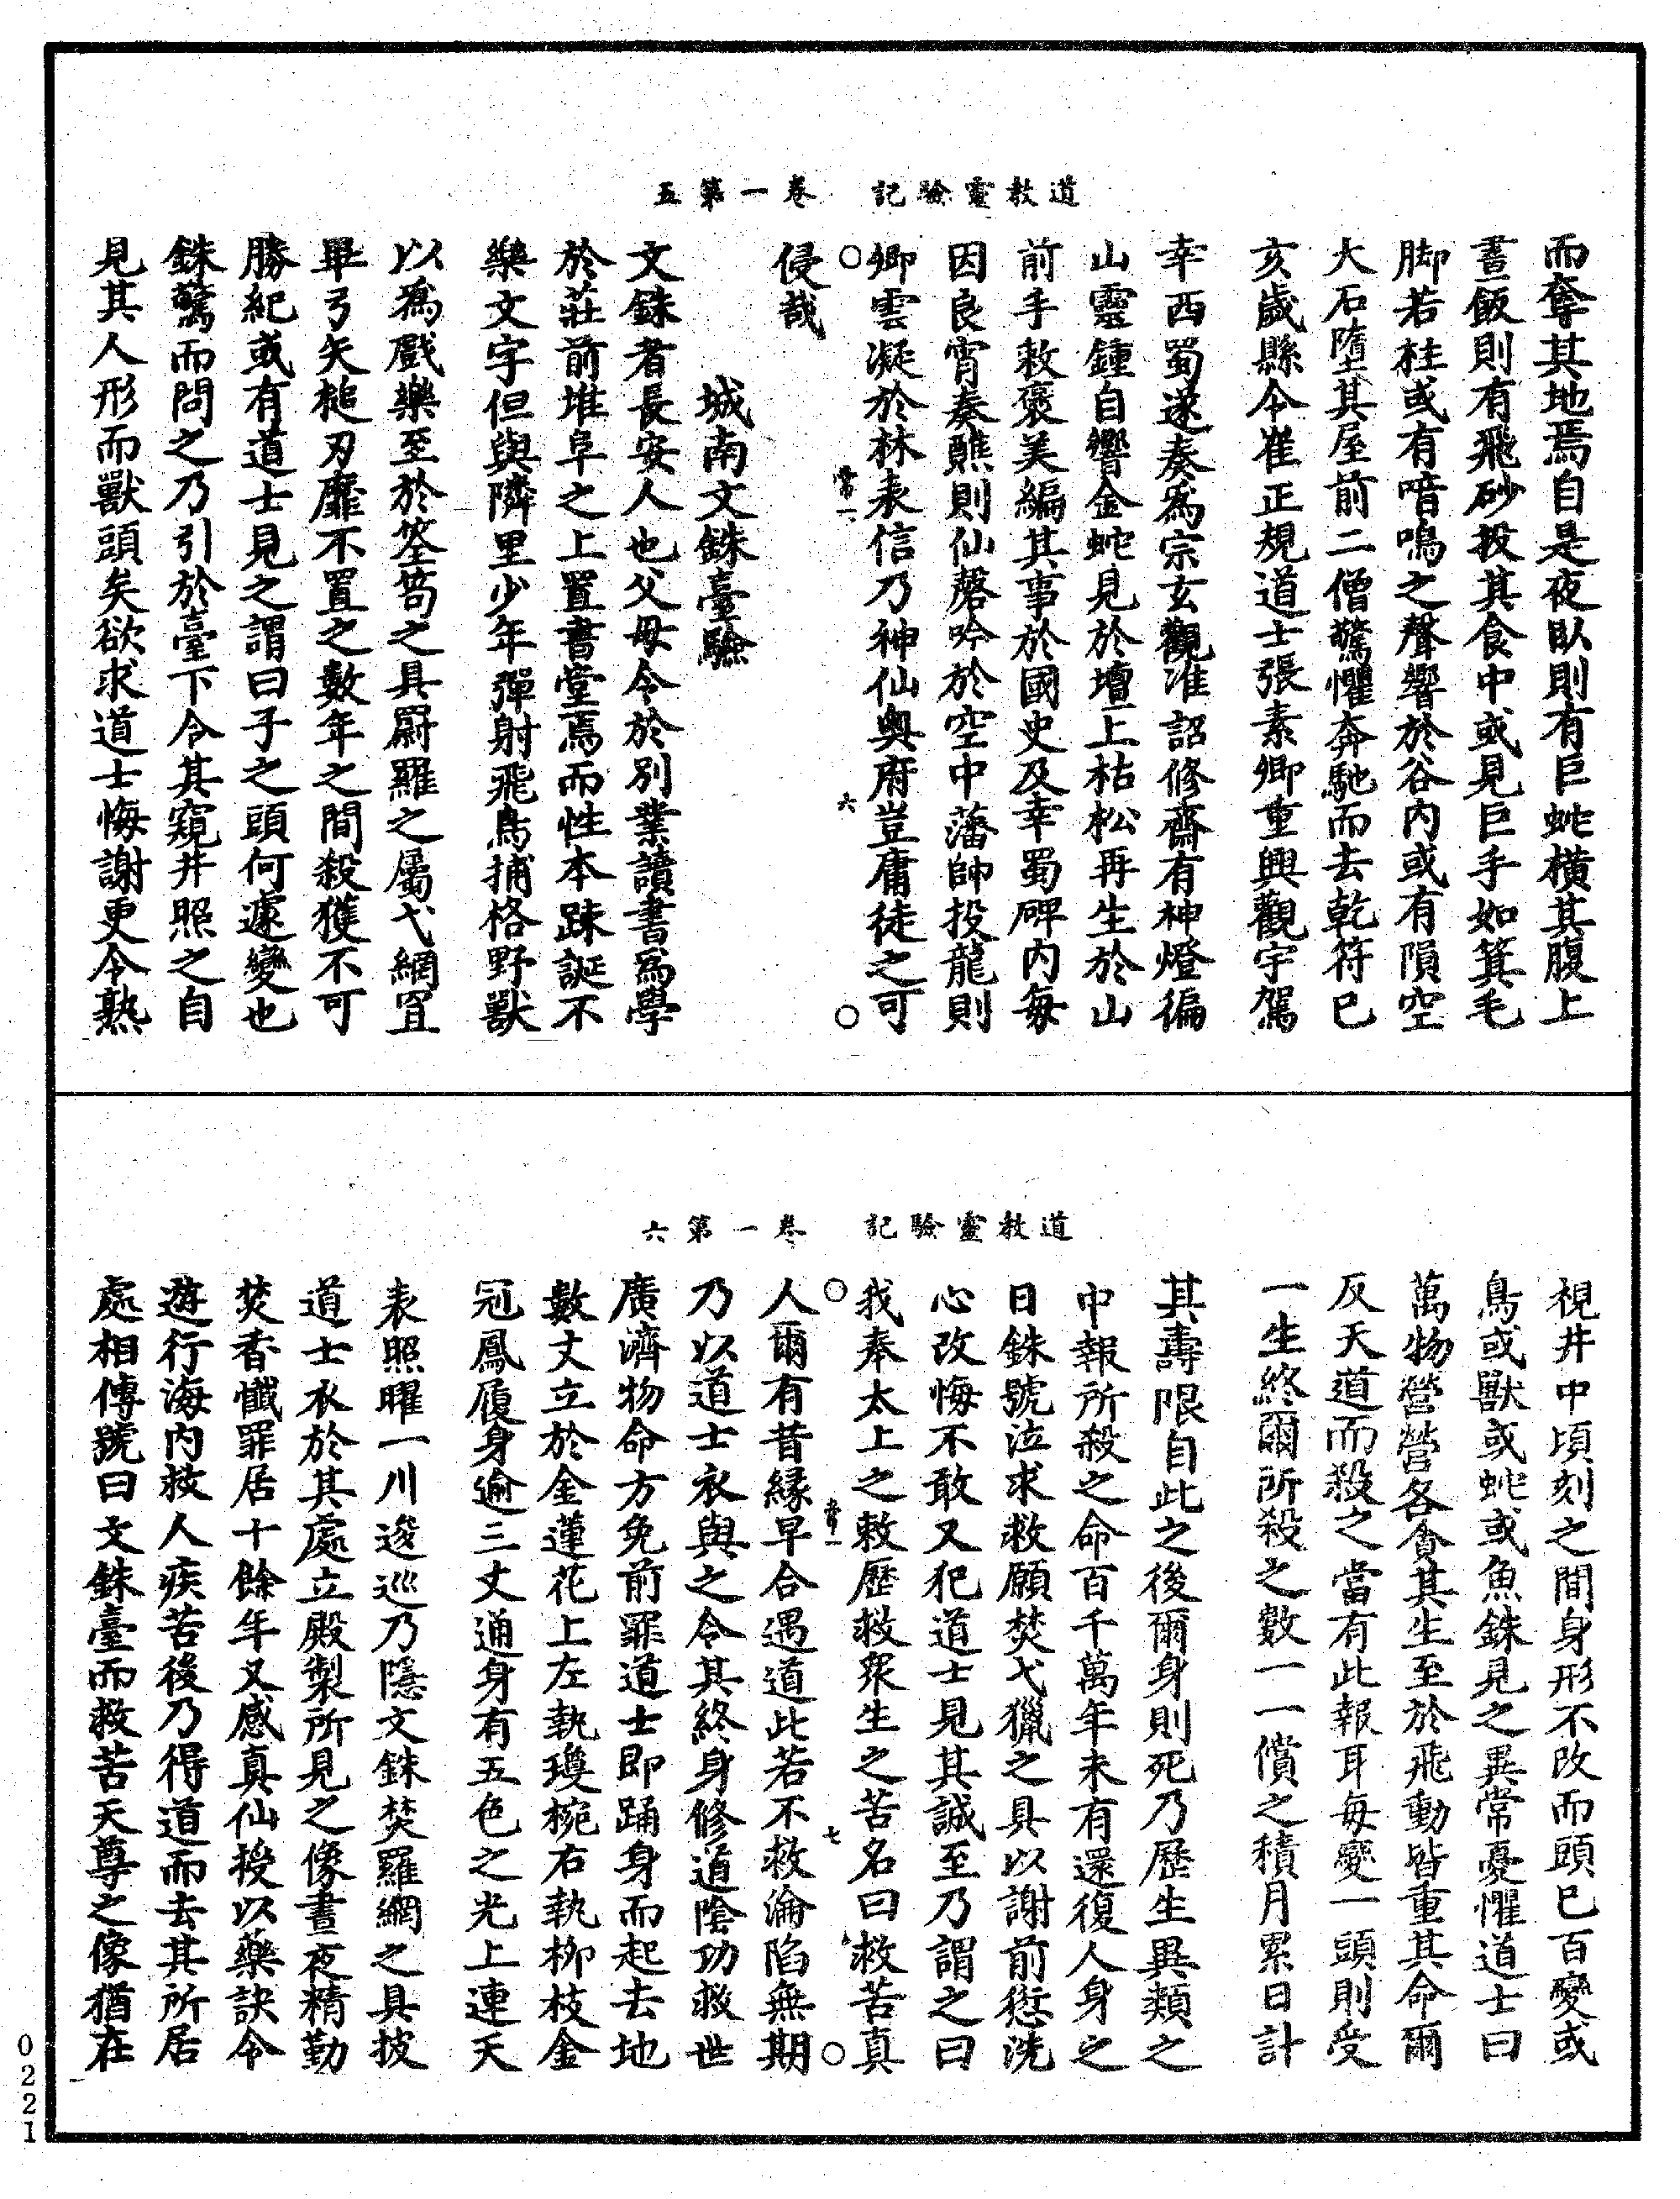 道教靈驗記　卷一第五
而奪其地焉自是夜臥則有巨蛇橫其腹上
晝飯則有飛砂投其食中或見巨手如箕毛
脚若柱或有喑鳴之聲響於谷內或有隕空
大石墮其屋前二僧驚懼奔馳而去乾符巳
亥歲縣令崔正規道士張素卿重興觀宇駕
幸西蜀遂奏爲宗玄觀准詔修齋有神燈徧
山靈鍾自響金蛇見於壇上枯松再生於山
前手敕褒美編其事於國史及幸蜀碑內每
因良宵奏醮則仙磬吟於空中藩帥投龍則
卿雲凝於林表信乃神仙奧府豈庸徒之可
常一　六
侵哉
城南文銖臺驗
文銖者長安人也父母令於別業讀書爲學
於莊前堆阜之上置書堂焉而性本踈誕不
樂文字但與隣里少年彈射飛鳥捕格野獸
以爲戲樂至於筌笱之具罻羅之屬弋網罝
畢弓矢槍刃靡不置之數年之間殺獲不可
勝紀或有道士見之謂曰子之頭何遽變也
銖驚而問之乃引於臺下令其窺井照之自
見其人形而獸頭矣欲求道士悔謝更令熟
道教靈驗記　卷一第六
視井中頃刻之間身形不改而頭已百變或
鳥或獸或蛇或魚銖見之異常憂懼道士曰
萬物營營各貪其生至於飛動皆重其命爾
反天道而殺之當有此報耳每變一頭則受
一生終爾所殺之數一一償之積月累日計
其壽限自此之後爾身則死乃歷生異類之
中報所殺之命百千萬年未有還復人身之
日銖號泣求救願焚弋獵之具以謝前愆洗
心改悔不敢又犯道士見其誠至乃謂之曰
我奉太上之敕歷救眾生之苦名曰救苦真
常一　七
人爾有昔緣早合遇道此若不救淪陷無期
乃以道士衣與之令其終身修道陰功救世
廣濟物命方免前罪道士即踊身而起去地
數丈立於金蓮花上左執瓊椀右執柳枝金
冠鳳履身逾三丈通身有五色之光上連天
表照曜一川逡巡乃隱文銖焚羅網之具披
道士衣於其處立殿製所見之像晝夜精勤
焚香懺罪居十餘年又感真仙授以藥訣令
遊行海內救人疾苦後乃得道而去其所居
處相傳號曰文銖臺而救苦天尊之像猶在
0221